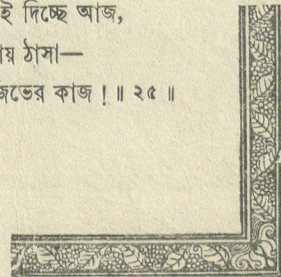 ই দিচ্ছে আজ,
য় ঠাসা—
জিভের কাজ ! ॥ ২৫ ॥